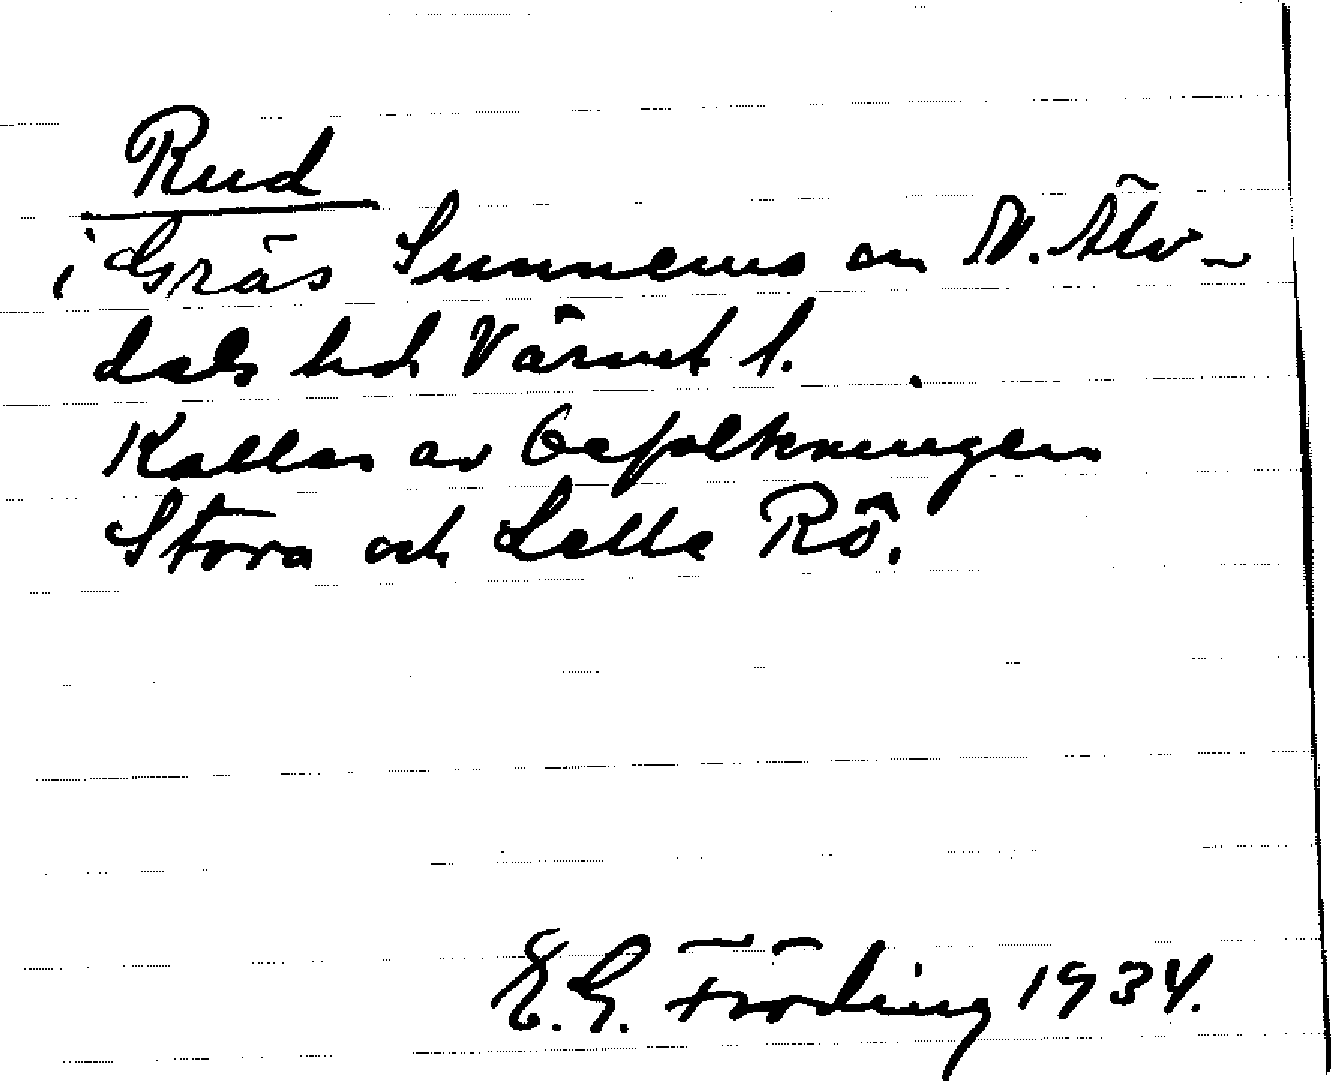 Rud
i Gräs Sunnemo sn N. Älv-
dals hd Värml l.
Kallas av befolkningen
Stora och Lella Rö.
E. G. Fröding 1934.